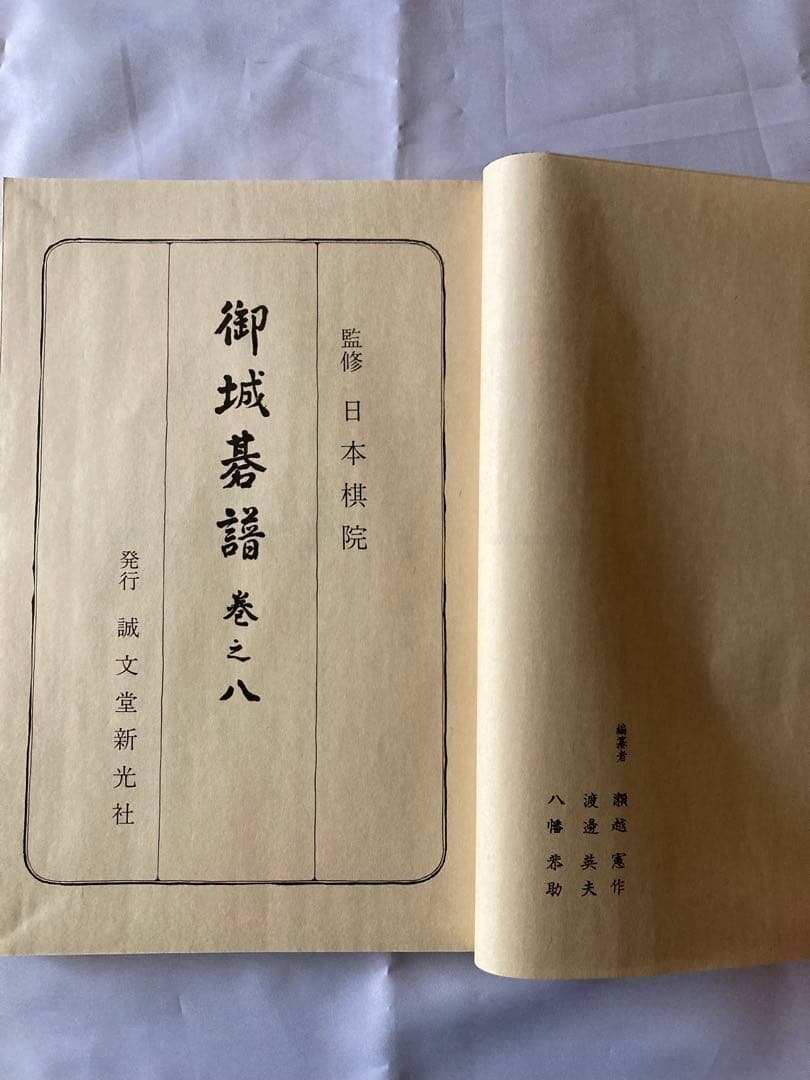 監修 日本棋院
御城碁譜 巻之八
発行 誠文堂新光社
編纂者 瀬越憲作
渡邊英夫
八幡恭助